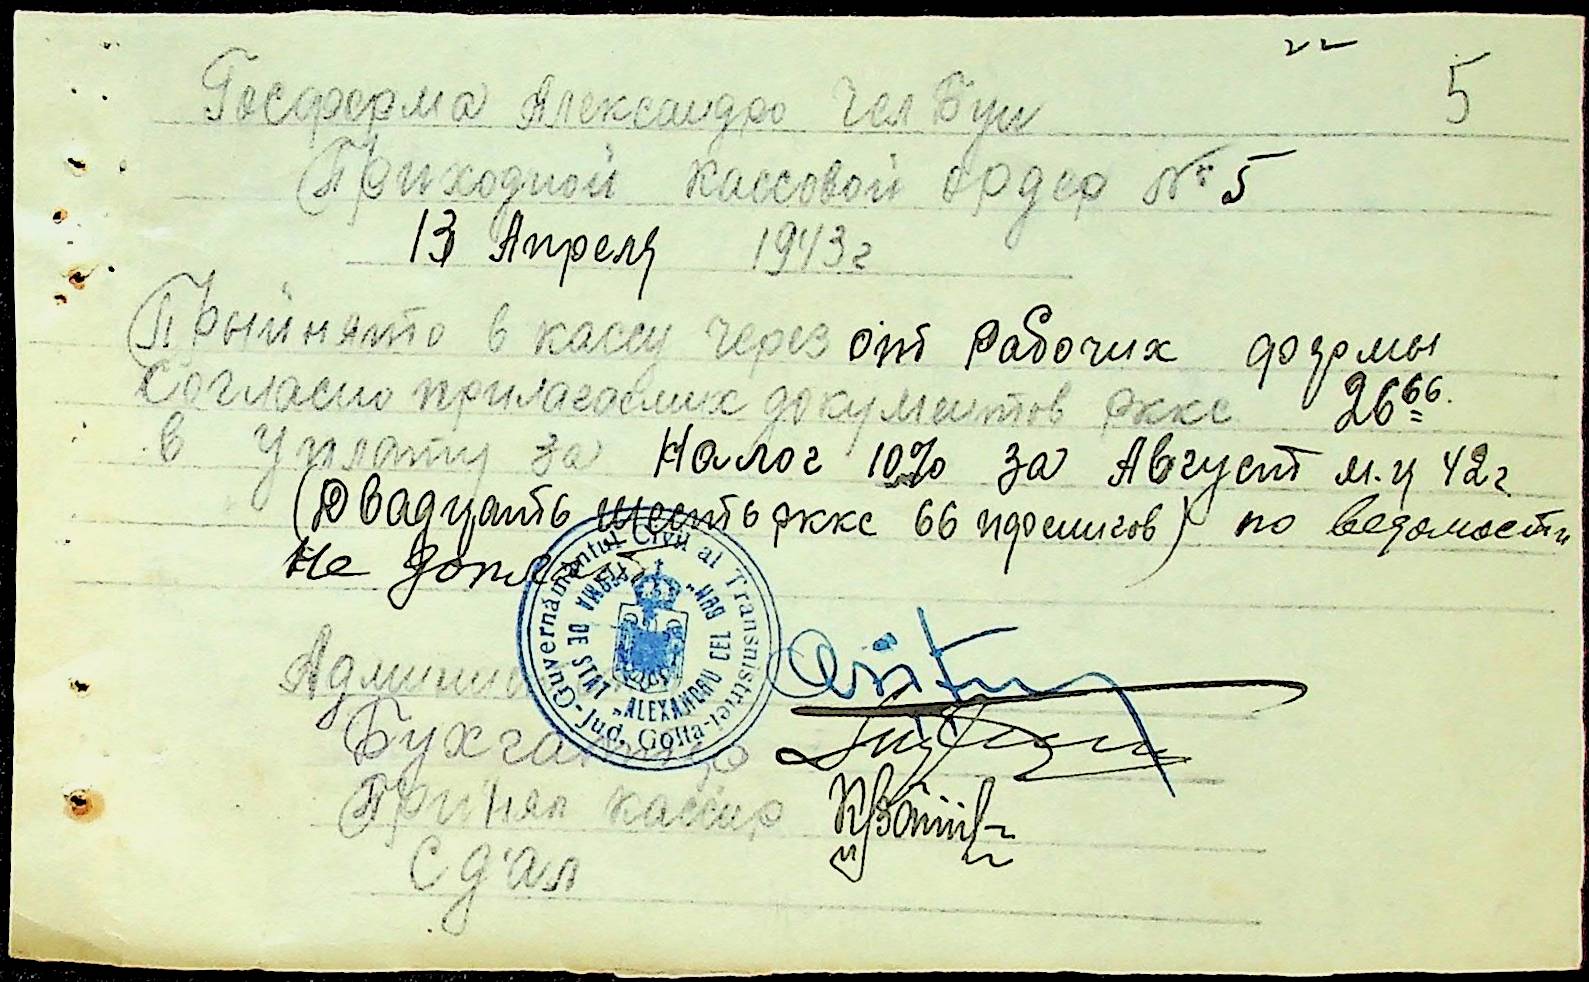 5
Госферма Александро чел Бун
Приходной кассовой ордер № 5
13 Апреля 1943г
Прыйнято в кассу через от рабочих фермы
Согласно прилагаемих документов рккс 26 66
в уплату за Налог 10% за Август м.ц 42г
(Двадцать шесть рккс 66 пфенигов) по ведомости
не
Guvernământul Civil al Transnistriei - Jud. Golta -
FERMA DE STAT „ALEXANDRU CEL BUN"
Бухгалтер
Принял кассир
Сдал